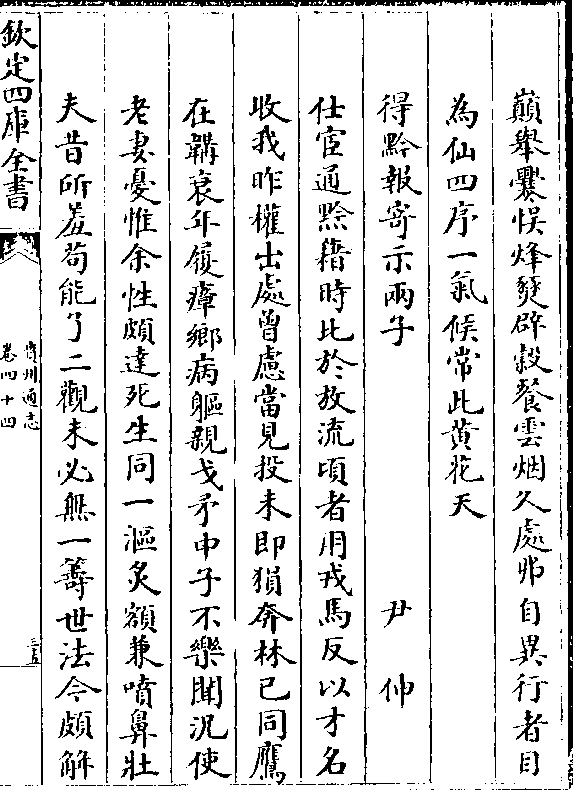 巔舉爨悞烽燹辟穀餐雲烟久處弗自異行者目
為仙四序一氣候常此黄花天
得黔報寄示兩子　尹伸
仕宦通黔籍時比於放流頃者用戎馬反以才名
收我昨權出處曾慮當見投未即㺅奔林已同鷹
在韝衰年履瘴鄉病軀親戈矛中子不樂聞況使
老妻憂惟余性頗達死生同一漚炙額兼噴鼻壯
夫昔所羞苟能了二觀未必無一籌世法今頗解
欽定四庫全書
貴州通志
卷四十四